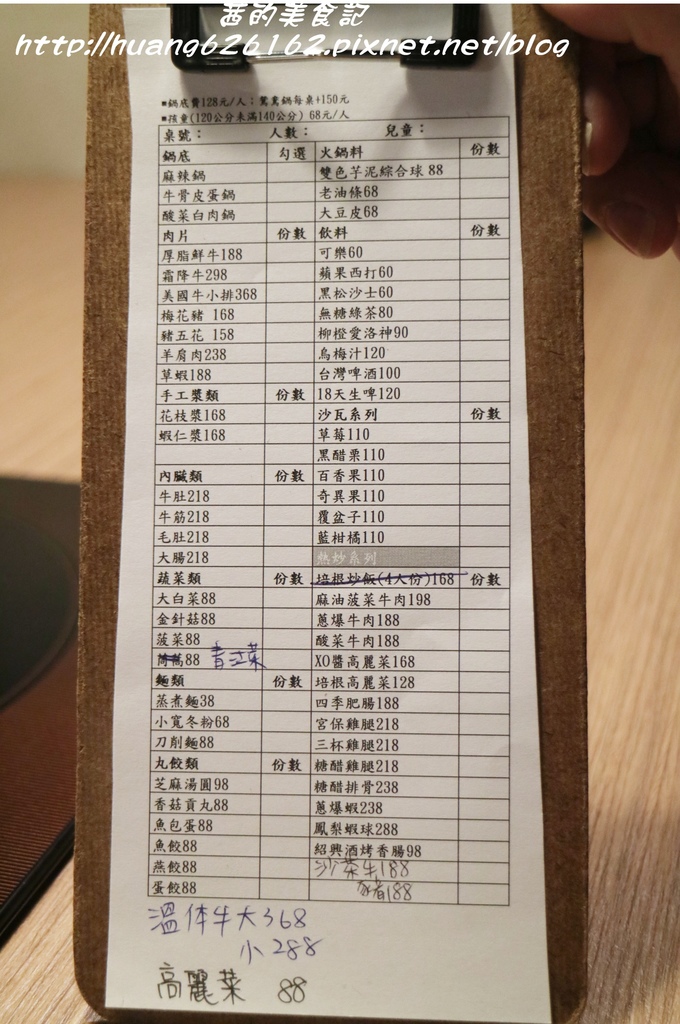 茜的美食記
http://huang626162.pixnet.net/blog
■鍋底費128元/人；鴛鴦鍋每桌+150元
■孩童(120公分未滿140公分) 68元/人
桌號： 人數： 兒童：
鍋底 勾選 火鍋料 份數
麻辣鍋 雙色芋泥綜合球 88
牛骨皮蛋鍋 老油條68
酸菜白肉鍋 大豆皮68
肉片 份數 飲料 份數
厚脂鮮牛188 可樂60
霜降牛298 蘋果西打60
美國牛小排368 黑松沙士60
梅花豬 168 無糖綠茶80
豬五花 158 柳橙愛洛神90
羊肩肉238 烏梅汁120
草蝦188 台灣啤酒100
手工漿類 份數 18天生啤120
花枝漿168 沙瓦系列 份數
蝦仁漿168 草莓110
黑醋栗110
內臟類 份數 百香果110
牛肚218 奇異果110
牛筋218 覆盆子110
毛肚218 藍柑橘110
大腸218 熱炒系列
蔬菜類 份數 培根炒飯(4人份)168 份數
大白菜88 麻油菠菜牛肉198
金針菇88 蔥爆牛肉188
菠菜88 酸菜牛肉188
茼蒿88 青江菜 XO醬高麗菜168
麵類 份數 培根高麗菜128
蒸煮麵38 四季肥腸188
小寬冬粉68 宮保雞腿218
刀削麵88 三杯雞腿218
丸餃類 份數 糖醋雞腿218
芝麻湯圓98 糖醋排骨238
香菇貢丸88 蔥爆蝦238
魚包蛋88 鳳梨蝦球288
魚餃88 紹興酒烤香腸98
燕餃88 沙茶牛188
蛋餃88 188
溫体牛大368
小288
高麗菜 88